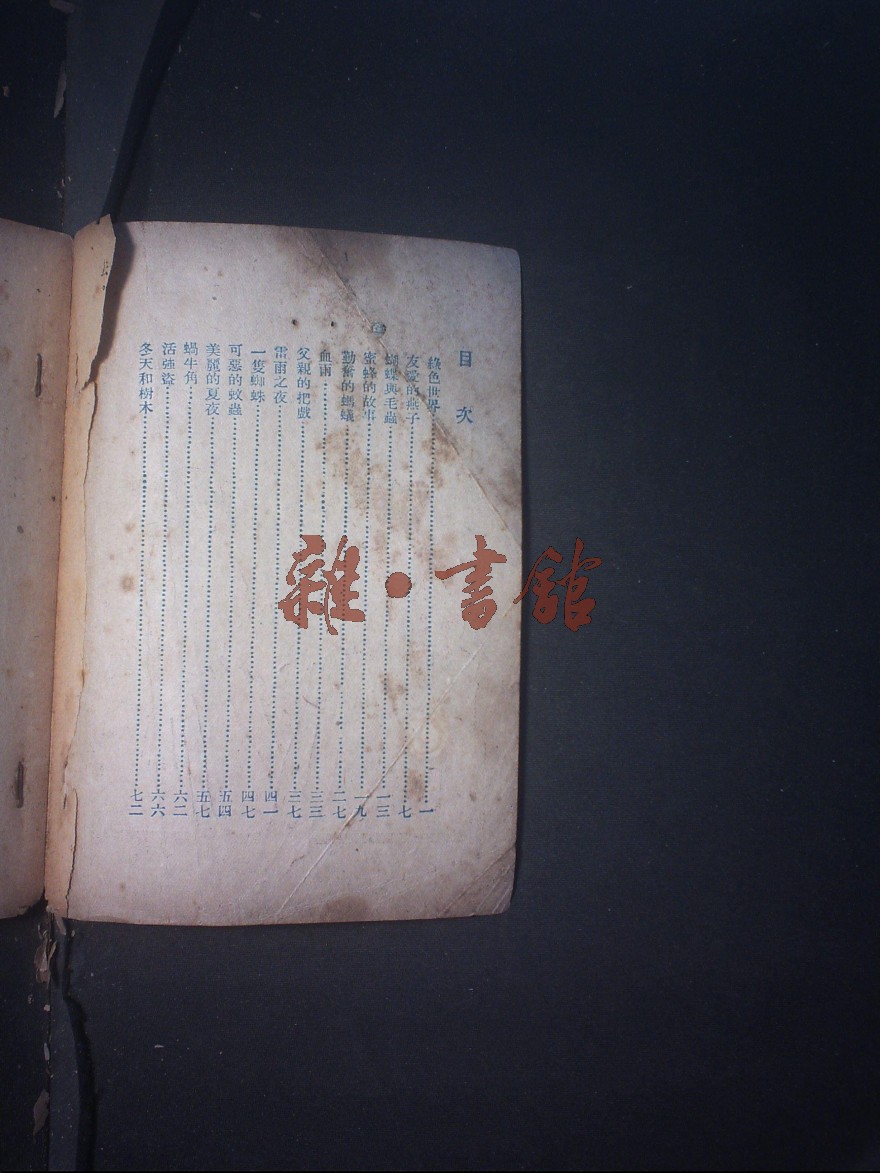 目次
綠色世界……一
友愛的燕子……七
蝴蝶與毛蟲……一三
蜜蜂的故事……一九
勤奮的螞蟻……二七
血雨……三三
父親的把戲……三七
雷雨之夜……四一
一隻蜘蛛……四七
可惡的蚊蟲……五四
美麗的夏夜……五七
蝸牛角……六二
活強盜……六六
冬天和樹木……七二
雜·書館